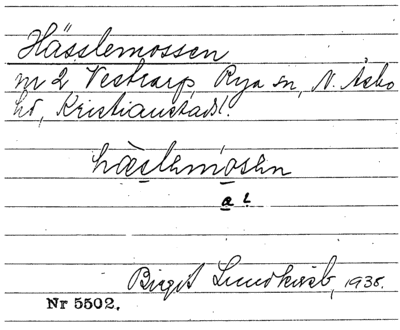 Hässlemossen
m 2 Vestrarp, Rya sn, N. Åsbo
hd, Kristianstads l.
hæslemosen
a !
Birgit Lundkvist, 1935.
Nr 5502.